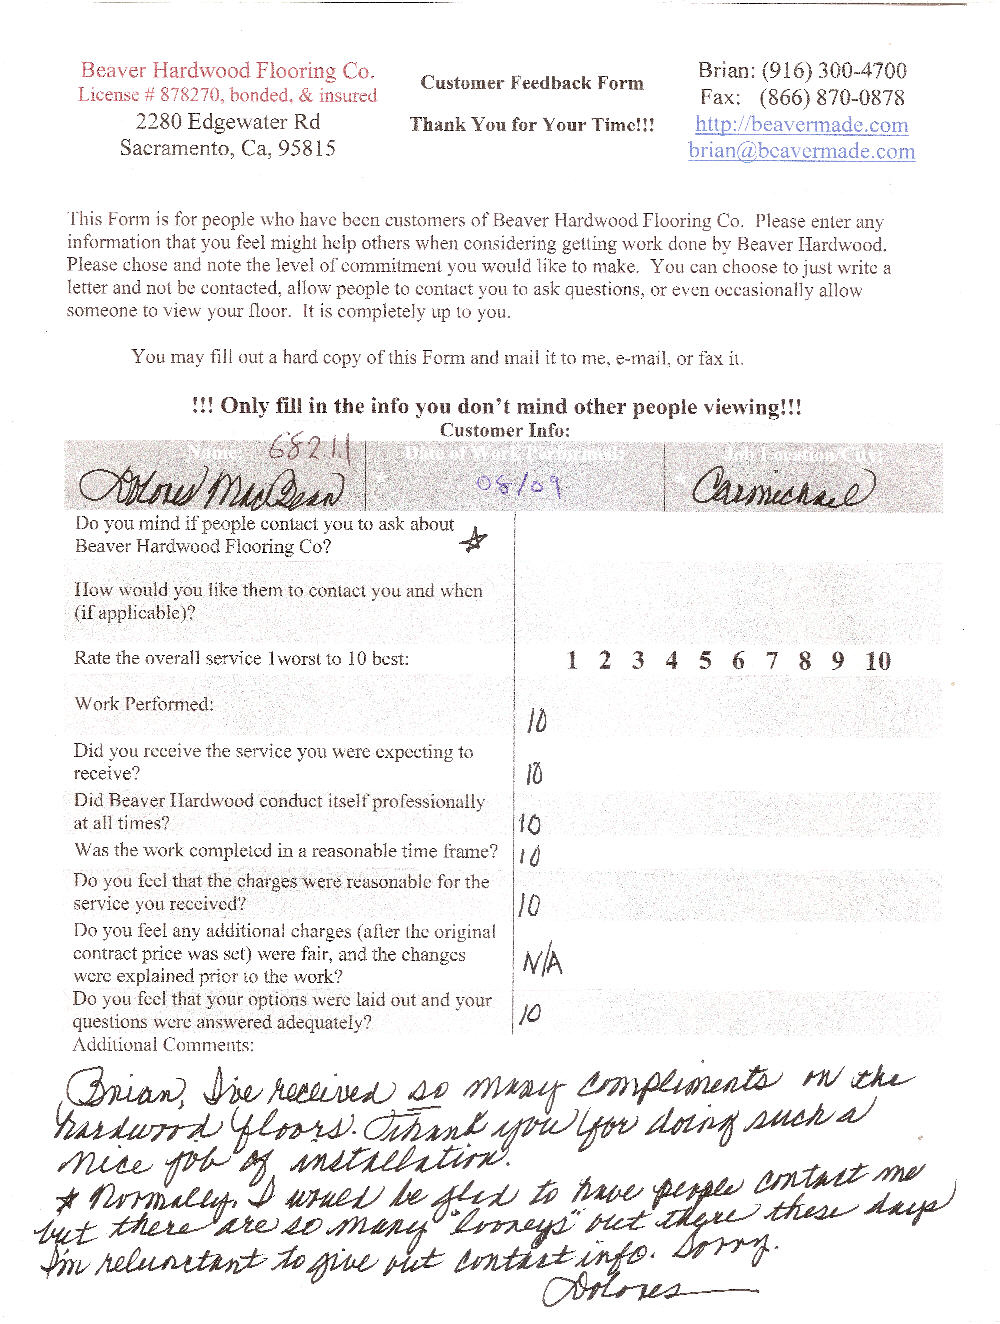 Beaver Hardwood Flooring Co.
License # 878270, bonded, & insured
2280 Edgewater Rd
Sacramento, Ca, 95815
Customer Feedback Form
Thank You for Your Time!!!
Brian: (916) 300-4700
Fax: (866) 870-0878
http://beavermade.com
brian@beavermade.com
This Form is for people who have been customers of Beaver Hardwood Flooring Co. Please enter any
information that you feel might help others when considering getting work done by Beaver Hardwood.
Please chose and note the level of commitment you would like to make. You can choose to just write a
letter and not be contacted, allow people to contact you to ask questions, or even occasionally allow
someone to view your floor. It is completely up to you.
You may fill out a hard copy of this Form and mail it to me, e-mail, or fax it.
!!! Only fill in the info you don't mind other people viewing!!!
Customer Info:
Name: 68211
Date of Work Performed:
Job Location/City:
Dolores MacBean
08/09
Carmichael
Do you mind if people contact you to ask about
Beaver Hardwood Flooring Co? ☆
How would you like them to contact you and when
(if applicable)?
Rate the overall service 1worst to 10 best: 1 2 3 4 5 6 7 8 9 10
Work Performed: 10
Did you receive the service you were expecting to
receive? 10
Did Beaver Hardwood conduct itself professionally
at all times? 10
Was the work completed in a reasonable time frame? 10
Do you feel that the charges were reasonable for the
service you received? 10
Do you feel any additional charges (after the original
contract price was set) were fair, and the changes
were explained prior to the work? N/A
Do you feel that your options were laid out and your
questions were answered adequately? 10
Additional Comments:
Brian, I've received so many compliments on the
hardwood floors. Thank you for doing such a
nice job of installation.
☆ Normally, I would be glad to have people contact me
but there are so many "looneys" out there these days
I'm reluctant to give out contact info. Sorry.
Dolores